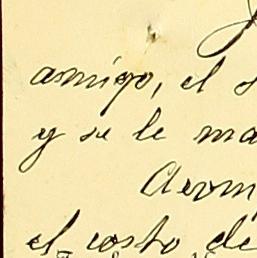 amigo, el s
y se le ma
Acom
el costo de